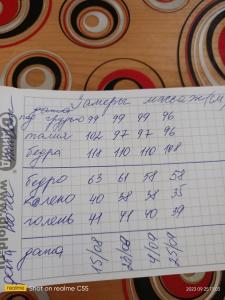 дата Замеры
под грудью 99 99 99 96
талия 102 97 97 96
бедра 118 110 110 108
бедро 63 61 58 58
колено 40 38 38 35
голень 41 41 40 39
дата 15/08 4/09 25/09
realme Shot on realme C55
2023.09.25 11:03